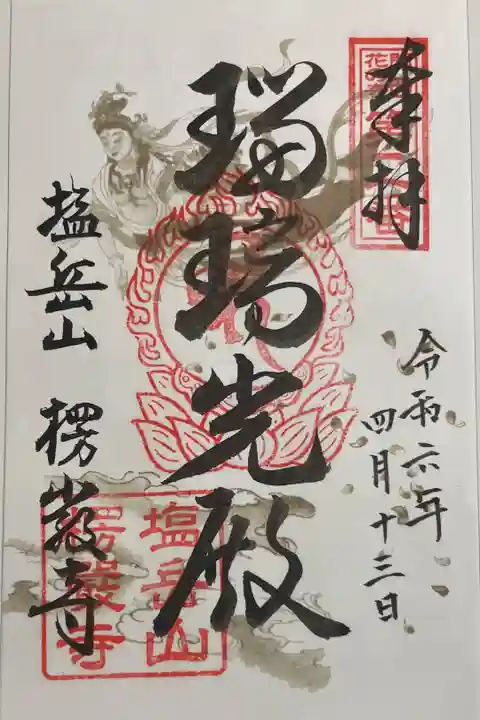 奉拝
令和六年
四月十三日
瑠璃光殿
塩岳山 楞嚴寺
塩岳山
楞嚴寺